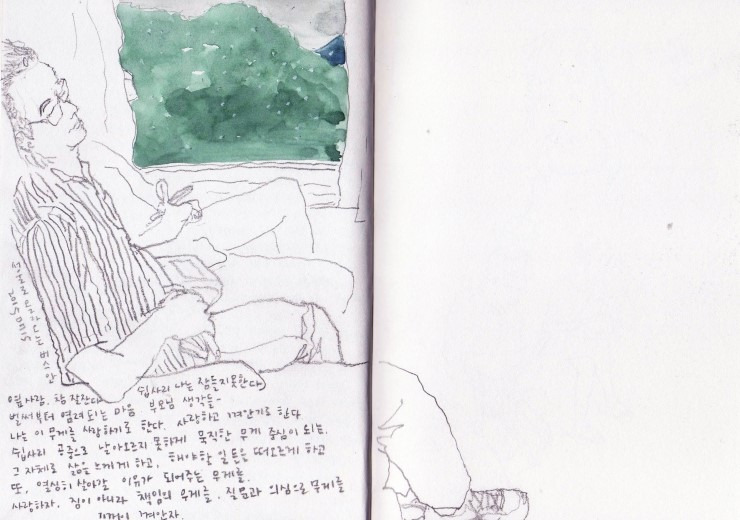 서울로 올라가는 버스 안
20150115
옆사람. 참 잘잔다. 쉽사리 나는 잠들지못한다.
벌써부터 염려되는 마음 부모님 생각들-
나는 이 무게를 사랑하기로 한다. 사랑하고 껴안기로 한다
쉽사리 공중으로 날아오르지 못하게 묵직한 무게 중심이 되는.
그 자체로 삶을 느끼게 하고. 해야할 일들을 떠오르게 하고
또, 열심히 살아갈 이유가 되어주는 무게를.
사랑하자. 짐이 아니라 책임의 무게를. 질문과 의심으로 무게를
껴안자.